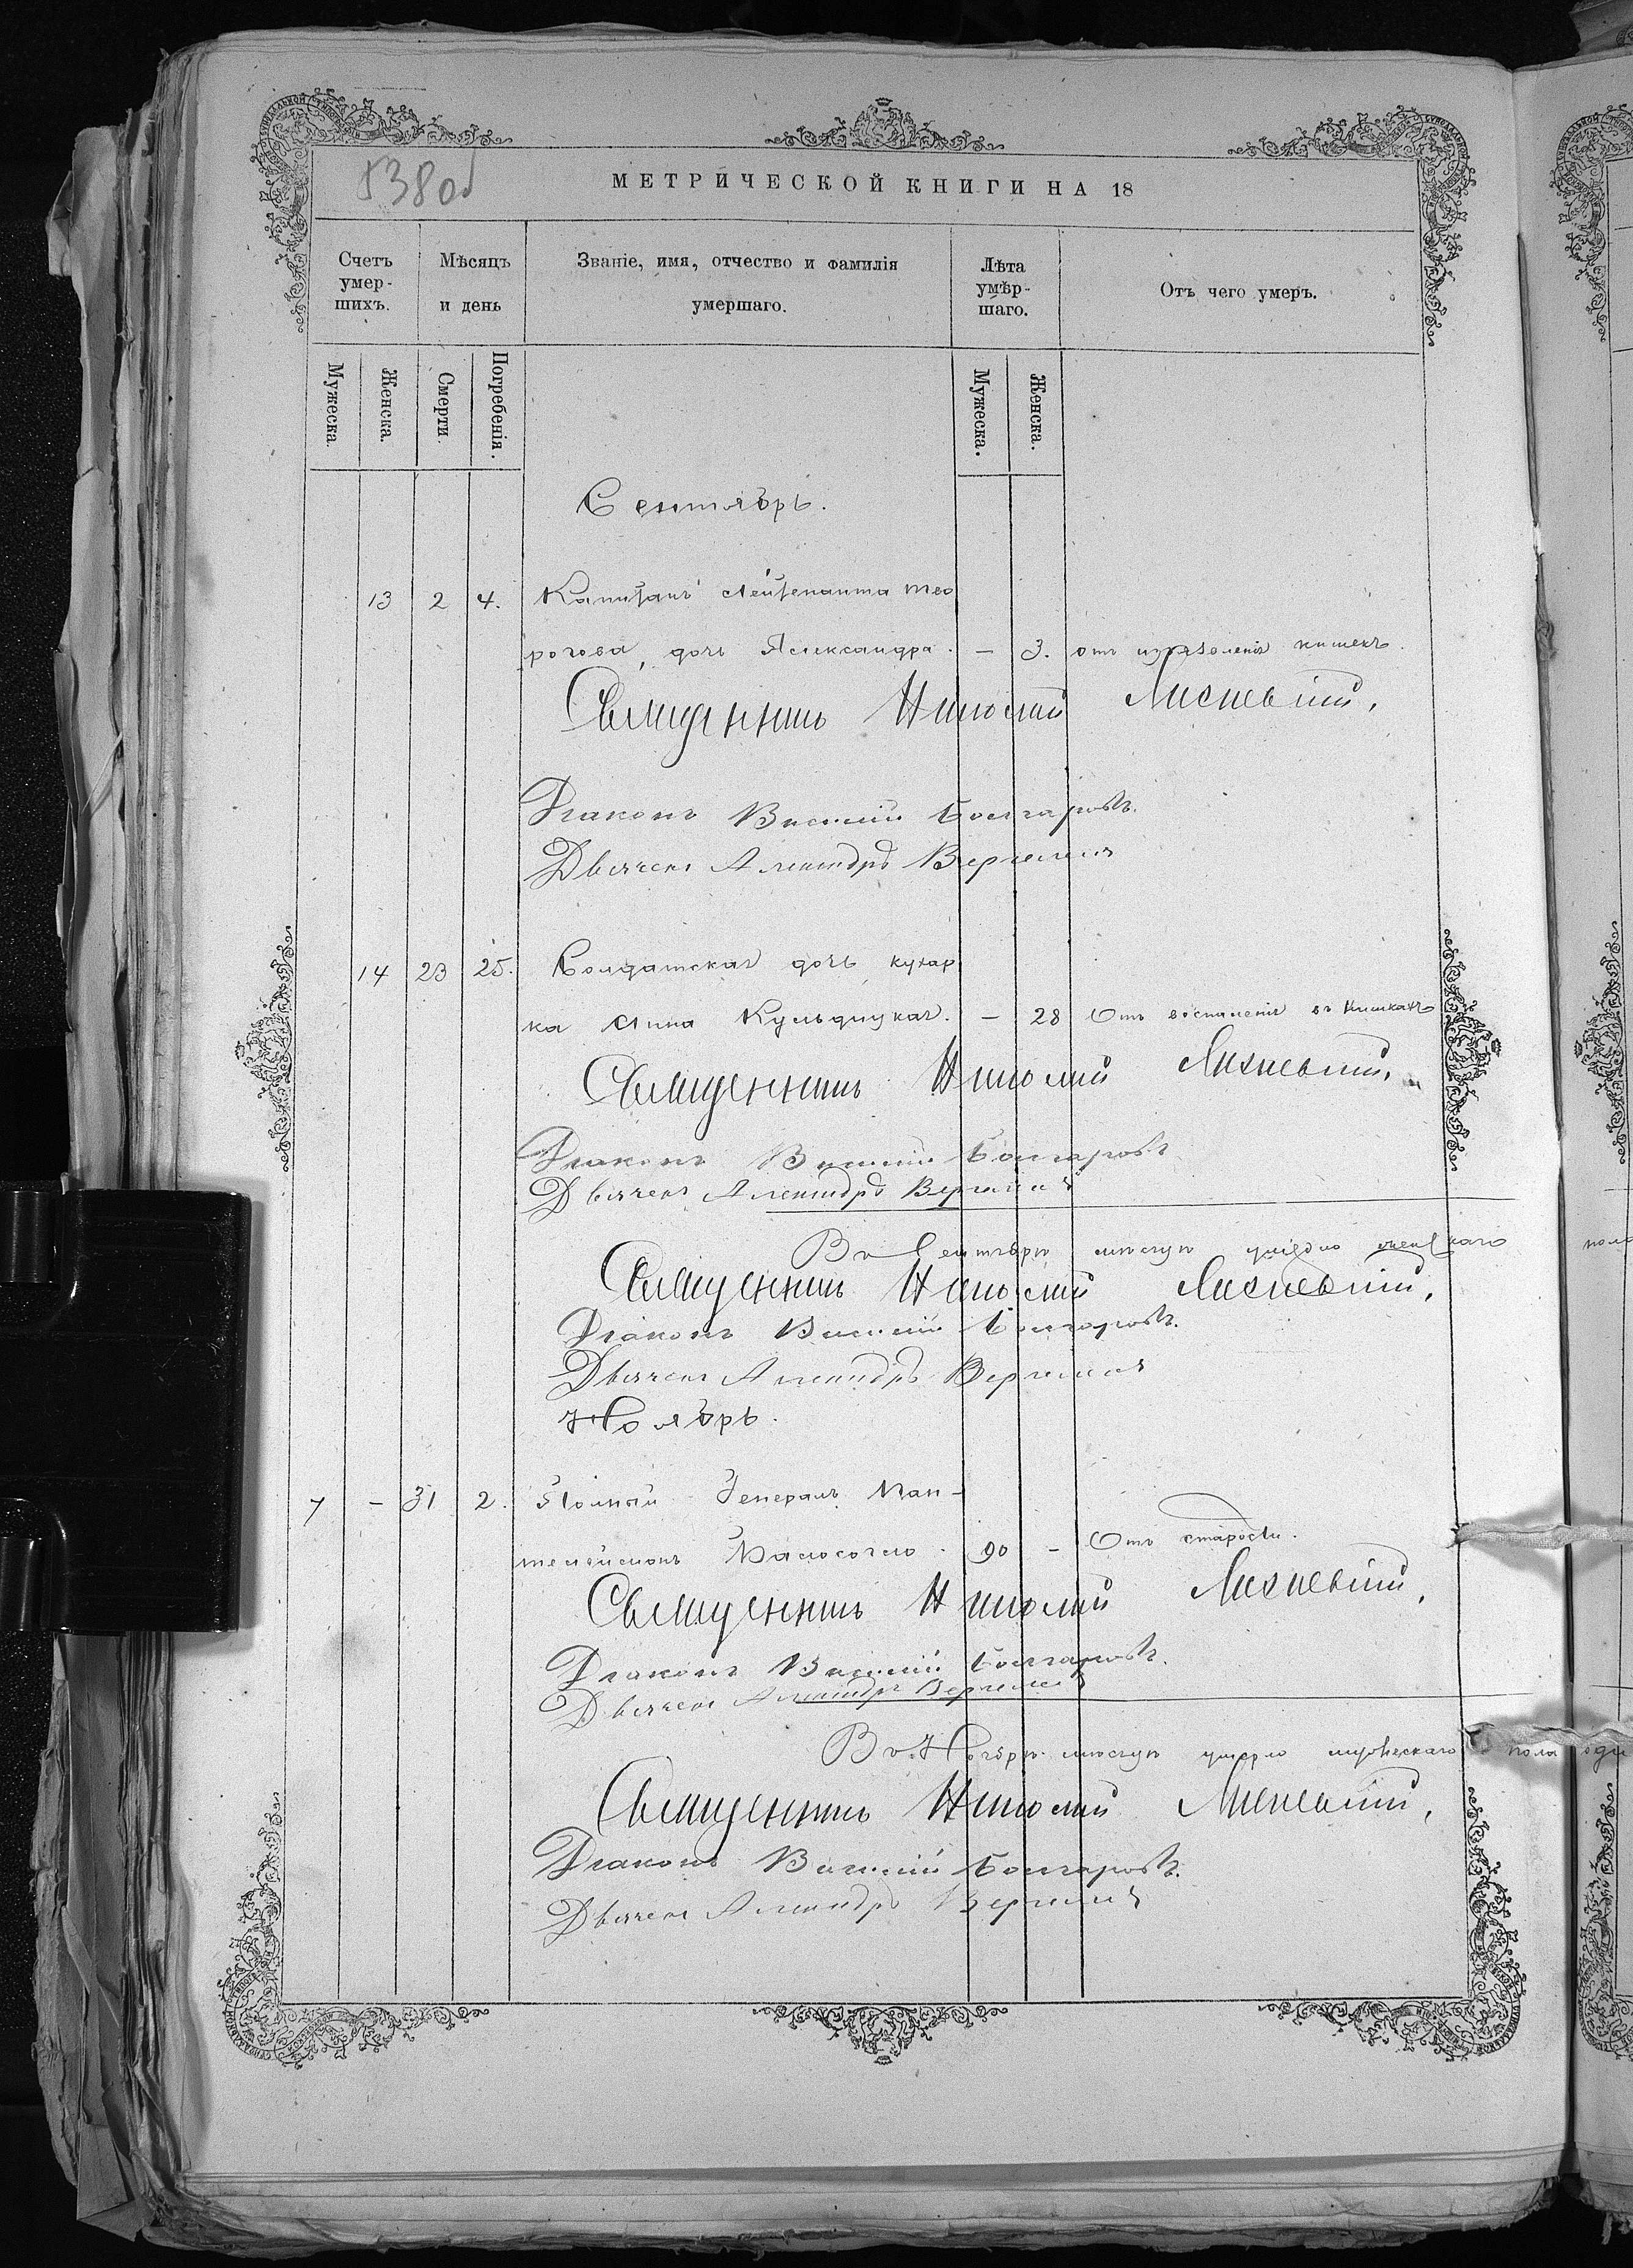 538об
МЕТРИЧЕСКОЙ КНИГИ НА 18
Счетъ умер-шихъ.
Мѣсяцъ и день
Званіе, имя, отчество и фамилія умершаго.
Лѣта умѣр-шаго.
Отъ чего умеръ.
Мужеска.
Женска.
Смерти.
Погребенія.
Мужеска.
Женска.
Сентябрь.
13 2 4. Капитанъ Лейтенанта
дочь Александра. — 3. отъ кишекъ.
Священникъ Николай
Діаконъ Василій Болгаровъ.
Дьячекъ Александръ
14 23 25. Солдатская дочь кухар
ка Анна — 28 Отъ воспаленія въ кишкахъ
Священникъ Николай
Діаконъ Василій Болгаровъ
Дьячекъ Александръ
Въ Сентябрѣ мѣсяцѣ умерло женскаго
Священникъ Николай
Діаконъ Василій Болгаровъ.
Дьячекъ Александръ
Ноябрь.
7 — 31 2. Полный Генералъ Пан-
телеймонъ 90 — Отъ старости.
Священникъ Николай
Діаконъ Василій Болгаровъ.
Дьячекъ Александръ
Въ Ноябрѣ мѣсяцѣ умерло мужескаго пола
Священникъ Николай
Діаконъ Василій Болгаровъ.
Дьячекъ Александръ